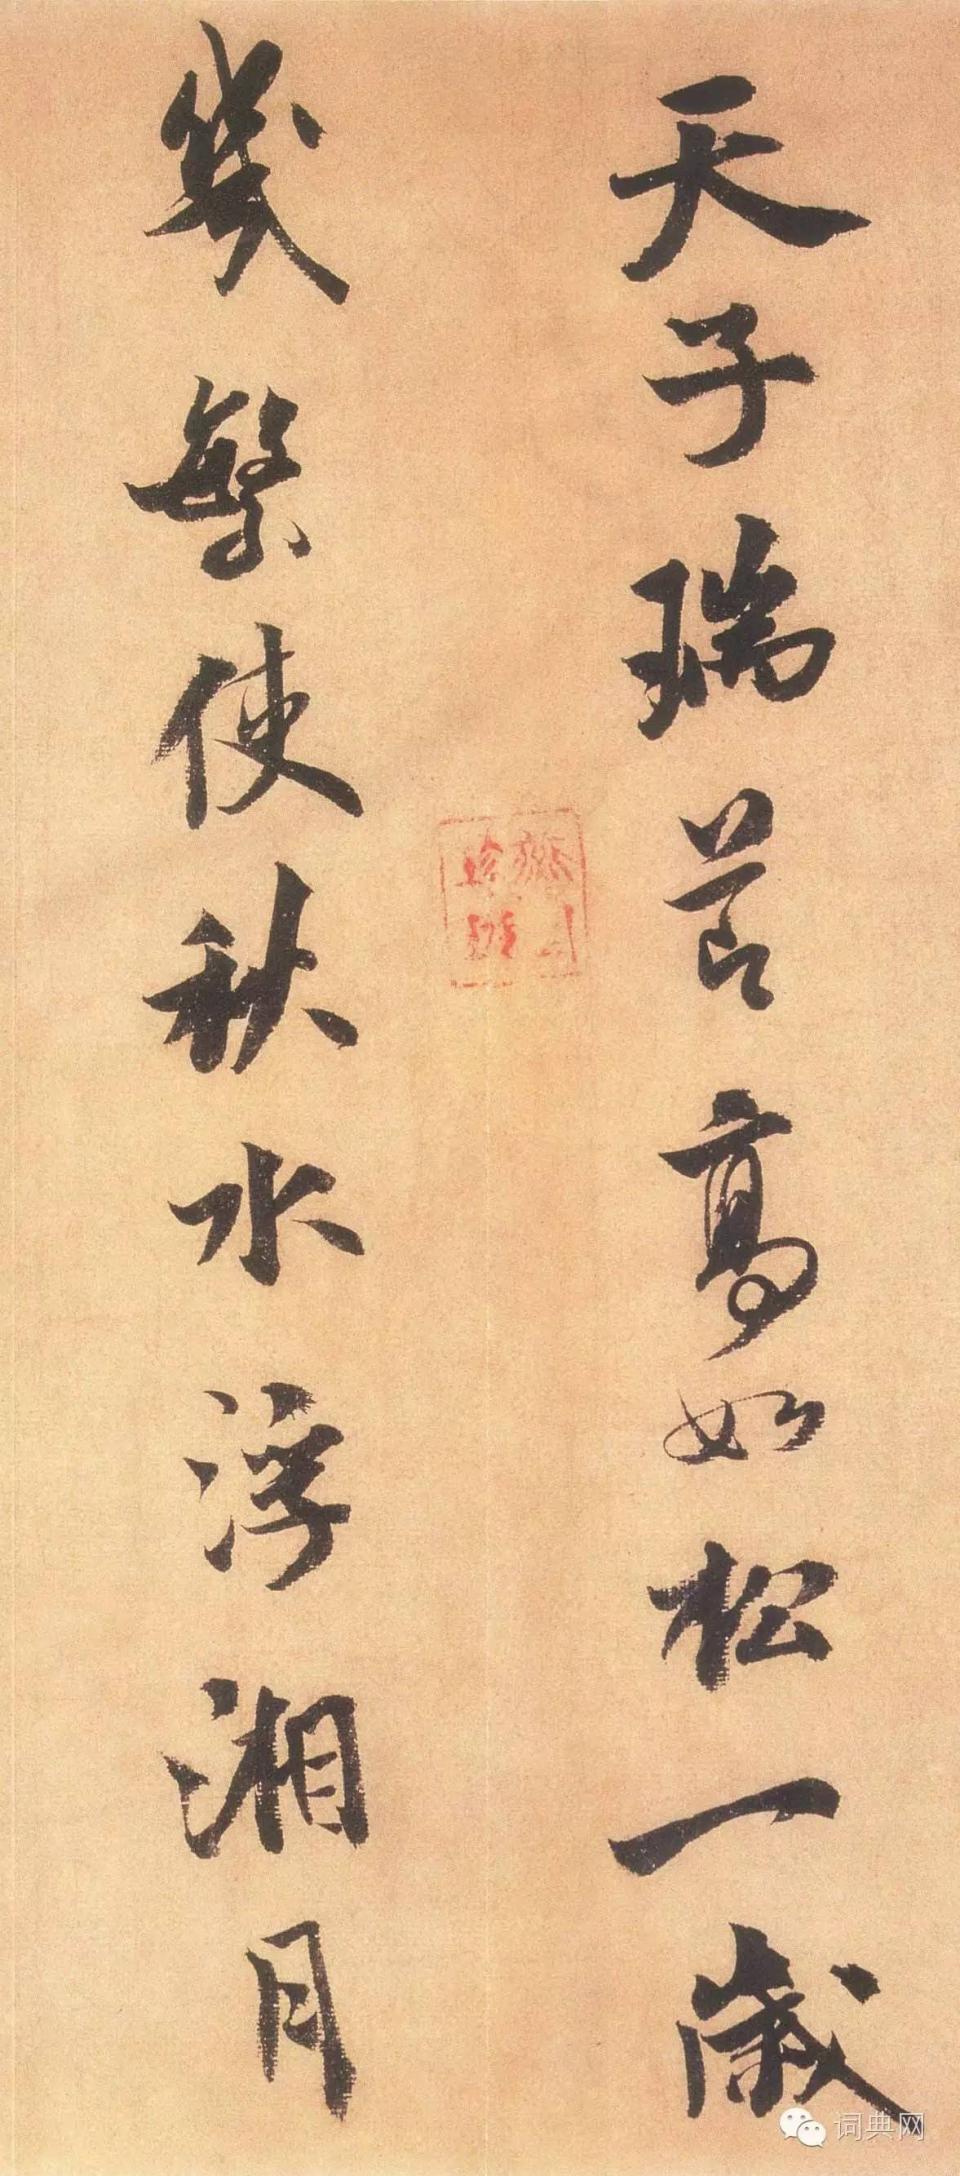 天子瑞节高如松一歲
幾繁使秋水浮湘月
词典网